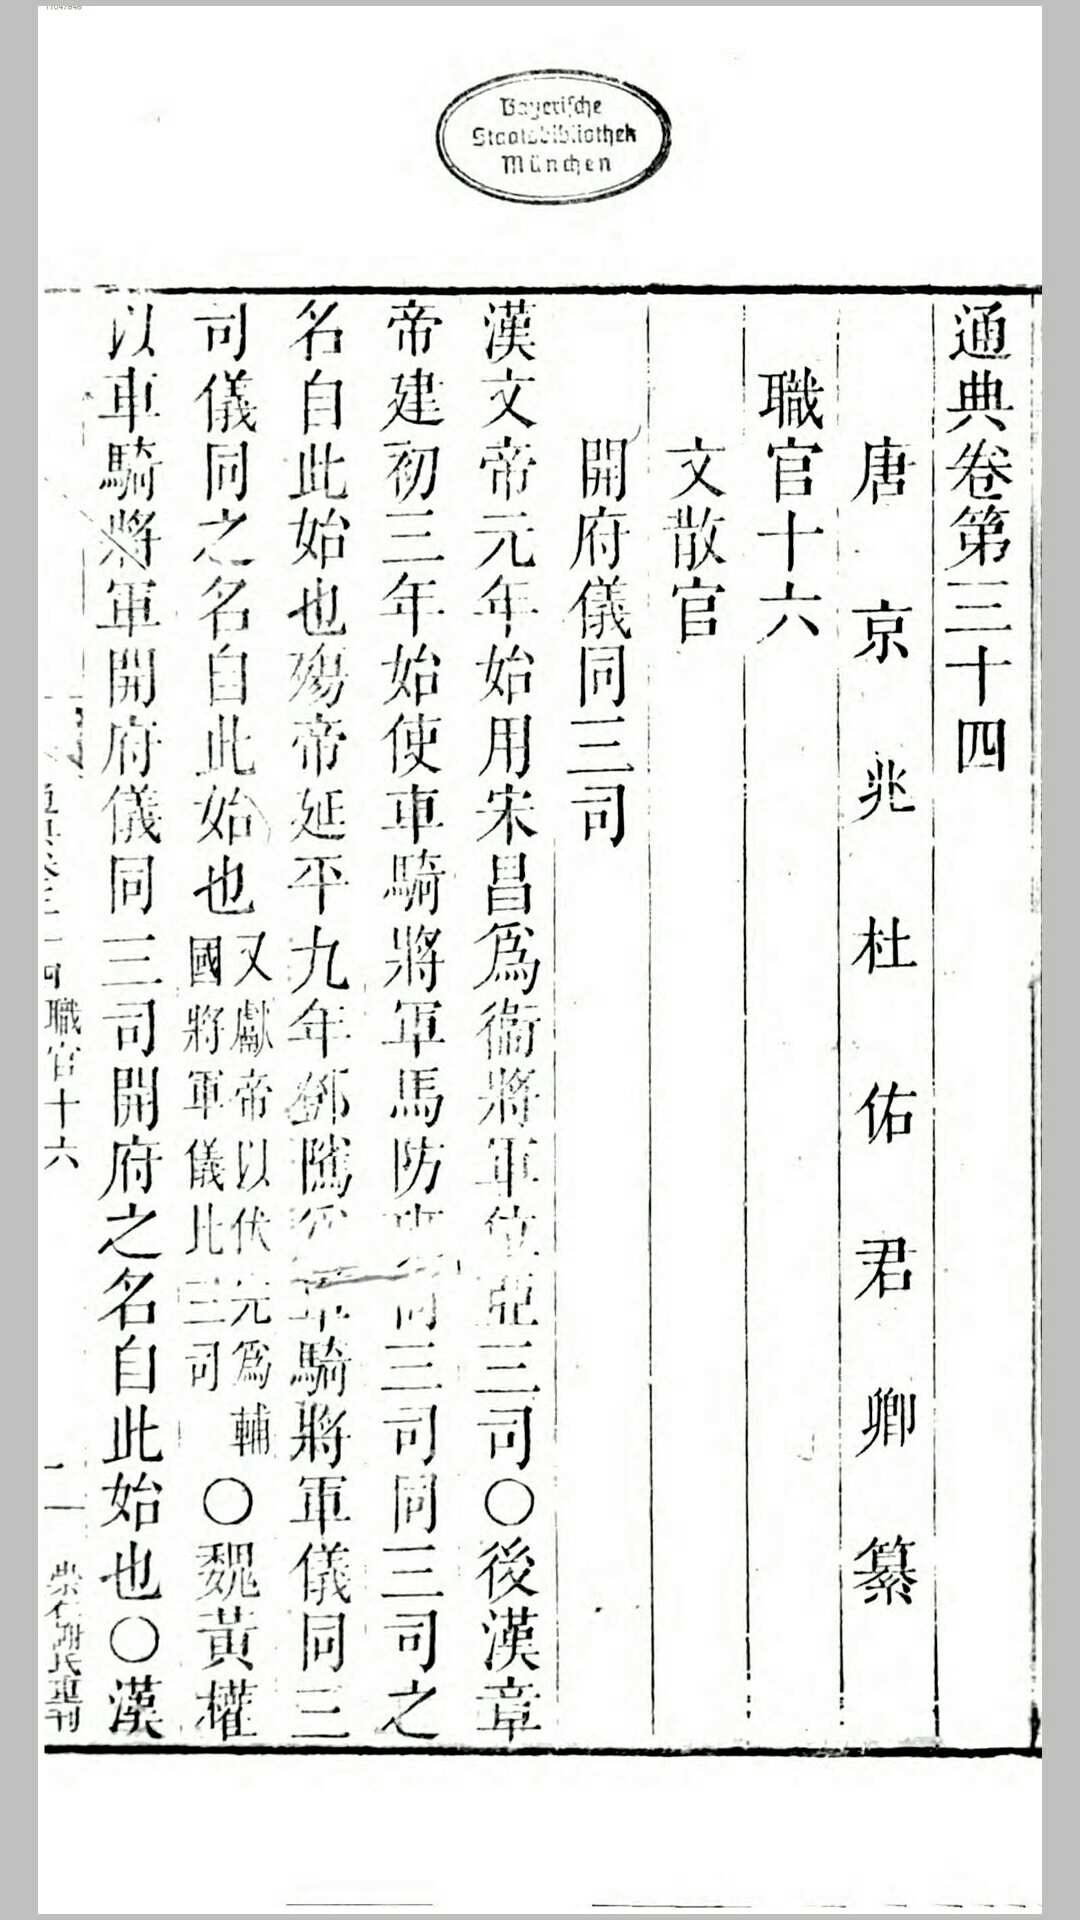 11047848
Bayerische
Staatsbibliothek
München
通典卷第三十四
唐京兆杜佑君卿纂
職官十六
文散官
開府儀同三司
漢文帝元年始用宋昌爲衞將軍位亞三司○後漢章
帝建初三年始使車騎將軍馬防班同三司同三司之
名自此始也殤帝延平九年鄧隲爲車騎將軍儀同三
司儀同之名自此始也
又獻帝以伏完爲輔
國將軍儀比三司
○魏黃權
以車騎將軍開府儀同三司開府之名自此始也○漢
職官十六
一
崇仁謝氏重刊